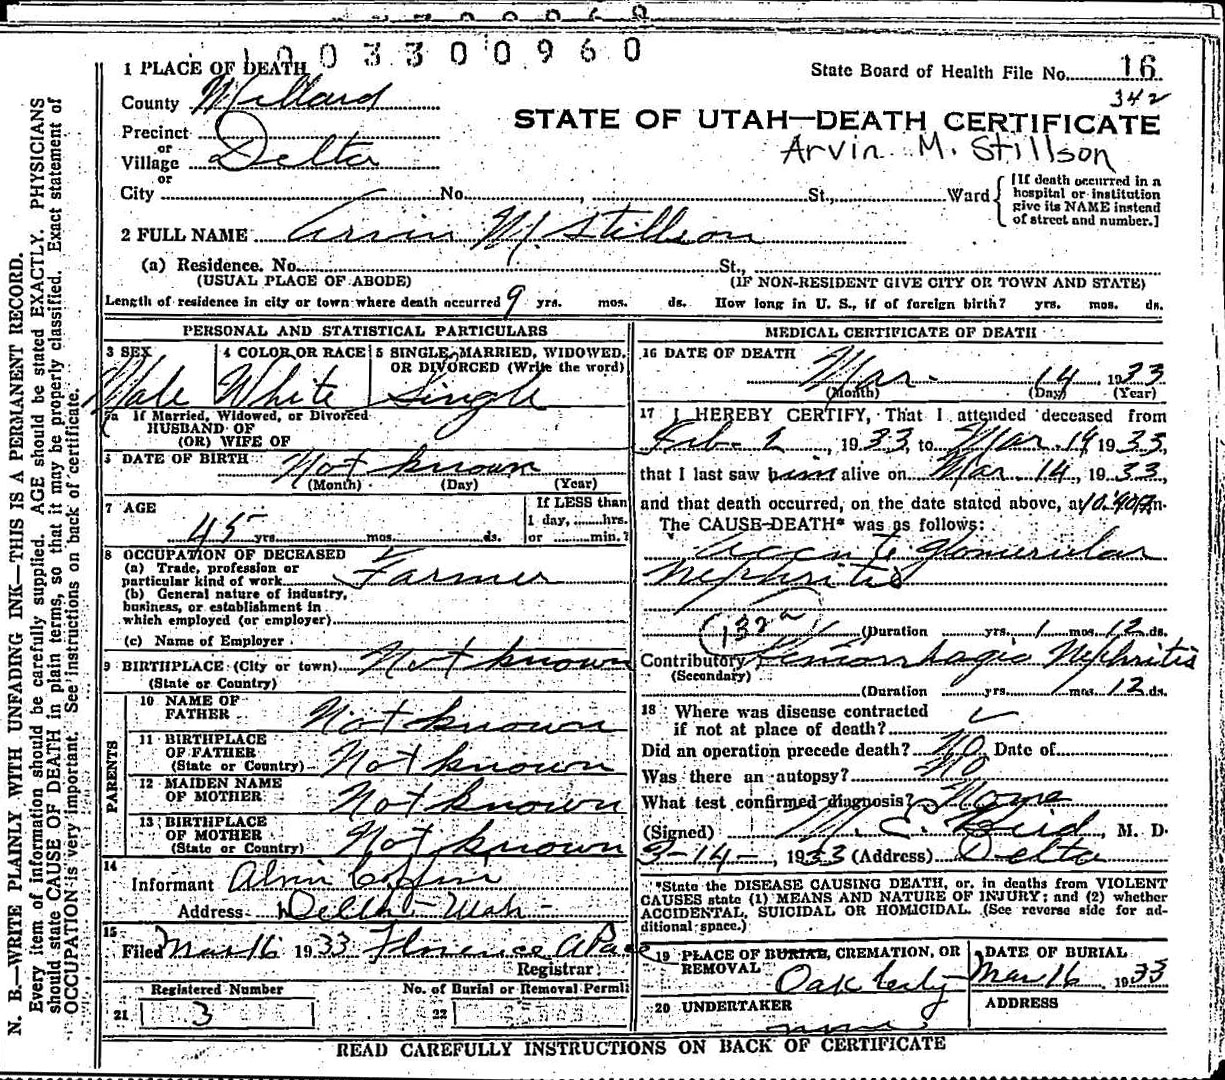 1003300960
1 PLACE OF DEATH
State Board of Health File No. 16
342
County Millard
STATE OF UTAH—DEATH CERTIFICATE
Arvin M. Stillson
Precinct
or
Village Delta
or
City No. , St., Ward
[If death occurred in a
hospital or institution
give its NAME instead
of street and number.]
2 FULL NAME Arvin M. Stillson
(a) Residence. No. St.,
(USUAL PLACE OF ABODE) (IF NON-RESIDENT GIVE CITY OR TOWN AND STATE)
Length of residence in city or town where death occurred 9 yrs. mos. ds. How long in U. S., if of foreign birth? yrs. mos. ds.
PERSONAL AND STATISTICAL PARTICULARS
3 SEX 4 COLOR OR RACE 5 SINGLE, MARRIED, WIDOWED,
OR DIVORCED (Write the word)
Male White Single
5a If Married, Widowed, or Divorced
HUSBAND OF
(OR) WIFE OF
DATE OF BIRTH Not known
(Month) (Day) (Year)
7 AGE If LESS than
1 day, hrs.
45 yrs. mos. ds. or min.?
8 OCCUPATION OF DECEASED
(a) Trade, profession or
particular kind of work Farmer
(b) General nature of industry,
business, or establishment in
which employed (or employer)
(c) Name of Employer
9 BIRTHPLACE (City or town) Not known
(State or Country)
PARENTS
10 NAME OF
FATHER Not known
11 BIRTHPLACE
OF FATHER
(State or Country) Not known
12 MAIDEN NAME
OF MOTHER Not known
13 BIRTHPLACE
OF MOTHER
(State or Country) Not known
14
Informant Alvin Coffin
Address Delta Utah
15
Filed Mar 16 1933 Florence A Pace
Registrar
Registered Number No. of Burial or Removal Permit
21 3 22
MEDICAL CERTIFICATE OF DEATH
16 DATE OF DEATH
Mar. 14 1933
(Month) (Day) (Year)
17 I HEREBY CERTIFY, That I attended deceased from
Feb- 2, 1933, to Mar. 14 1933,
that I last saw him alive on Mar. 14, 1933,
and that death occurred, on the date stated above, at 10:40 m.
The CAUSE-DEATH* was as follows:
Glomerular
Nephritis
132a
(Duration yrs. 1 mos. 12 ds.
Contributory Hemorrhagic Nephritis
(Secondary)
(Duration yrs. 1 mos. 12 ds.
18 Where was disease contracted
if not at place of death?
Did an operation precede death? No Date of
Was there an autopsy? No
What test confirmed diagnosis? None
(Signed) M. E. Bird, M. D.
3-14-, 1933 (Address) Delta
*State the DISEASE CAUSING DEATH, or, in deaths from VIOLENT
CAUSES state (1) MEANS AND NATURE OF INJURY; and (2) whether
ACCIDENTAL, SUICIDAL OR HOMICIDAL. (See reverse side for ad-
ditional space.)
19 PLACE OF BURIAL, CREMATION, OR
REMOVAL Oak City
DATE OF BURIAL
Mar 16 1933
20 UNDERTAKER ADDRESS
none
READ CAREFULLY INSTRUCTIONS ON BACK OF CERTIFICATE
N. B.—WRITE PLAINLY WITH UNFADING INK—THIS IS A PERMANENT RECORD.
Every item of information should be carefully supplied. AGE should be stated EXACTLY. PHYSICIANS
should state CAUSE OF DEATH in plain terms, so that it may be properly classified. Exact statement of
OCCUPATION is very important. See instructions on back of certificate.